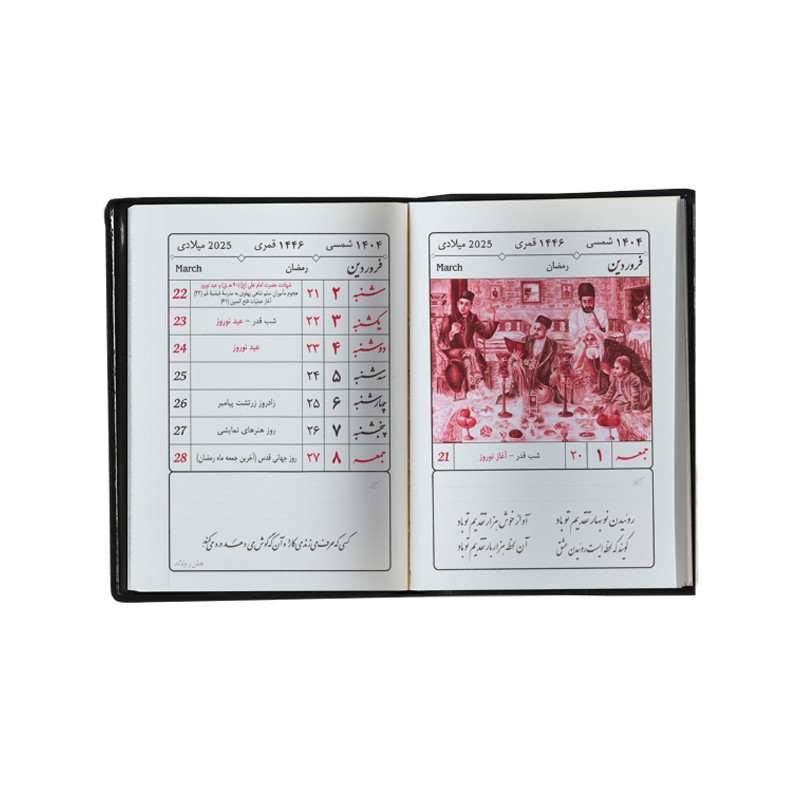 ۱۴۰۴ شمسی ۱۴۴۶ قمری 2025 میلادی
فروردین رمضان March
جمعه ۱ ۲۰ شب قدر - آغاز نوروز 21
روئیدن نوبهار تقدیم تو باد آواز خوش هزار تقدیم تو باد
گویند که لحظه ایست روئیدن عشق آن لحظه هزار بار تقدیم تو باد
۱۴۰۴ شمسی ۱۴۴۶ قمری 2025 میلادی
فروردین رمضان March
شنبه ۲ ۲۱ شهادت حضرت امام علی (ع) (۴۰ ه‍.ق) و عید نوروز 22
هجوم مأموران ستم شاهی پهلوی به مدرسهٔ فیضیهٔ قم (۴۲)
آغاز عملیات فتح المبین (۶۱)
یکشنبه ۳ ۲۲ شب قدر - عید نوروز 23
دوشنبه ۴ ۲۳ عید نوروز 24
سه‌شنبه ۵ ۲۴ 25
چهارشنبه ۶ ۲۵ زادروز زرتشت پیامبر 26
پنجشنبه ۷ ۲۶ روز هنرهای نمایشی 27
جمعه ۸ ۲۷ روز جهانی قدس (آخرین جمعه ماه رمضان) 28
کسی که حرف می‌زند می‌کارد و آن که گوش می‌دهد درو می‌کند